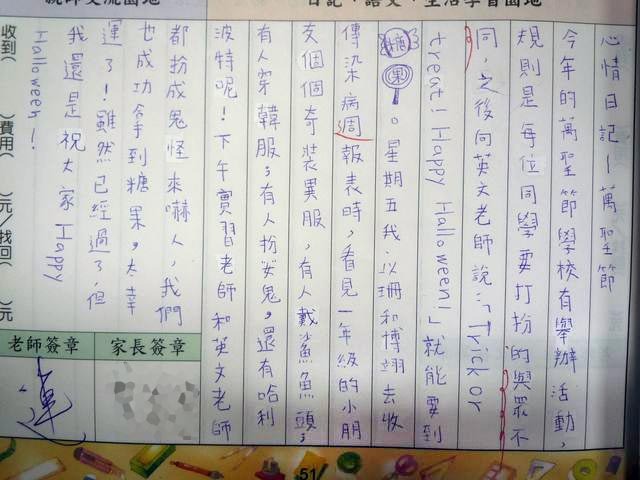 日記、語文、生活學習園地
心情日記－萬聖節
今年的萬聖節學校有舉辦活動，
規則是每位同學要打扮的與眾不
同，之後向英文老師說：「Trick or
treat! Happy Halloween!」就能要到
糖果。星期五我、以珊和博翊去收
傳染病週報表時，看見一年級的小朋
友個個奇裝異服，有人戴鯊魚頭；
有人穿韓服；有人扮女鬼，還有哈利
波特呢！下午實習老師和英文老師
親師交流園地
都扮成鬼怪來嚇人，我們
也成功拿到糖果，太幸
運了！雖然已經過了，但
我還是祝大家Happy
Halloween！
收到( )費用( )元/找回( )元
老師簽章 家長簽章
51